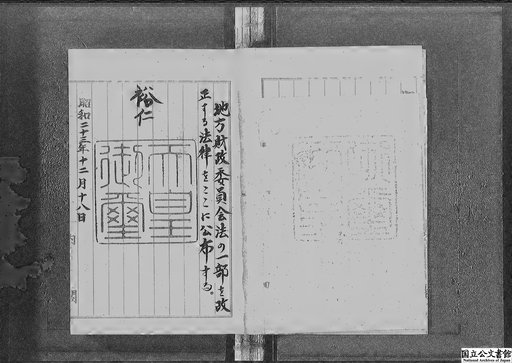 地方財政委員会法の一部を改
正する法律をここに公布する。
裕仁
天皇
御璽
昭和二十三年十二月十八日
内閣
国立公文書館
National Archives of Japan